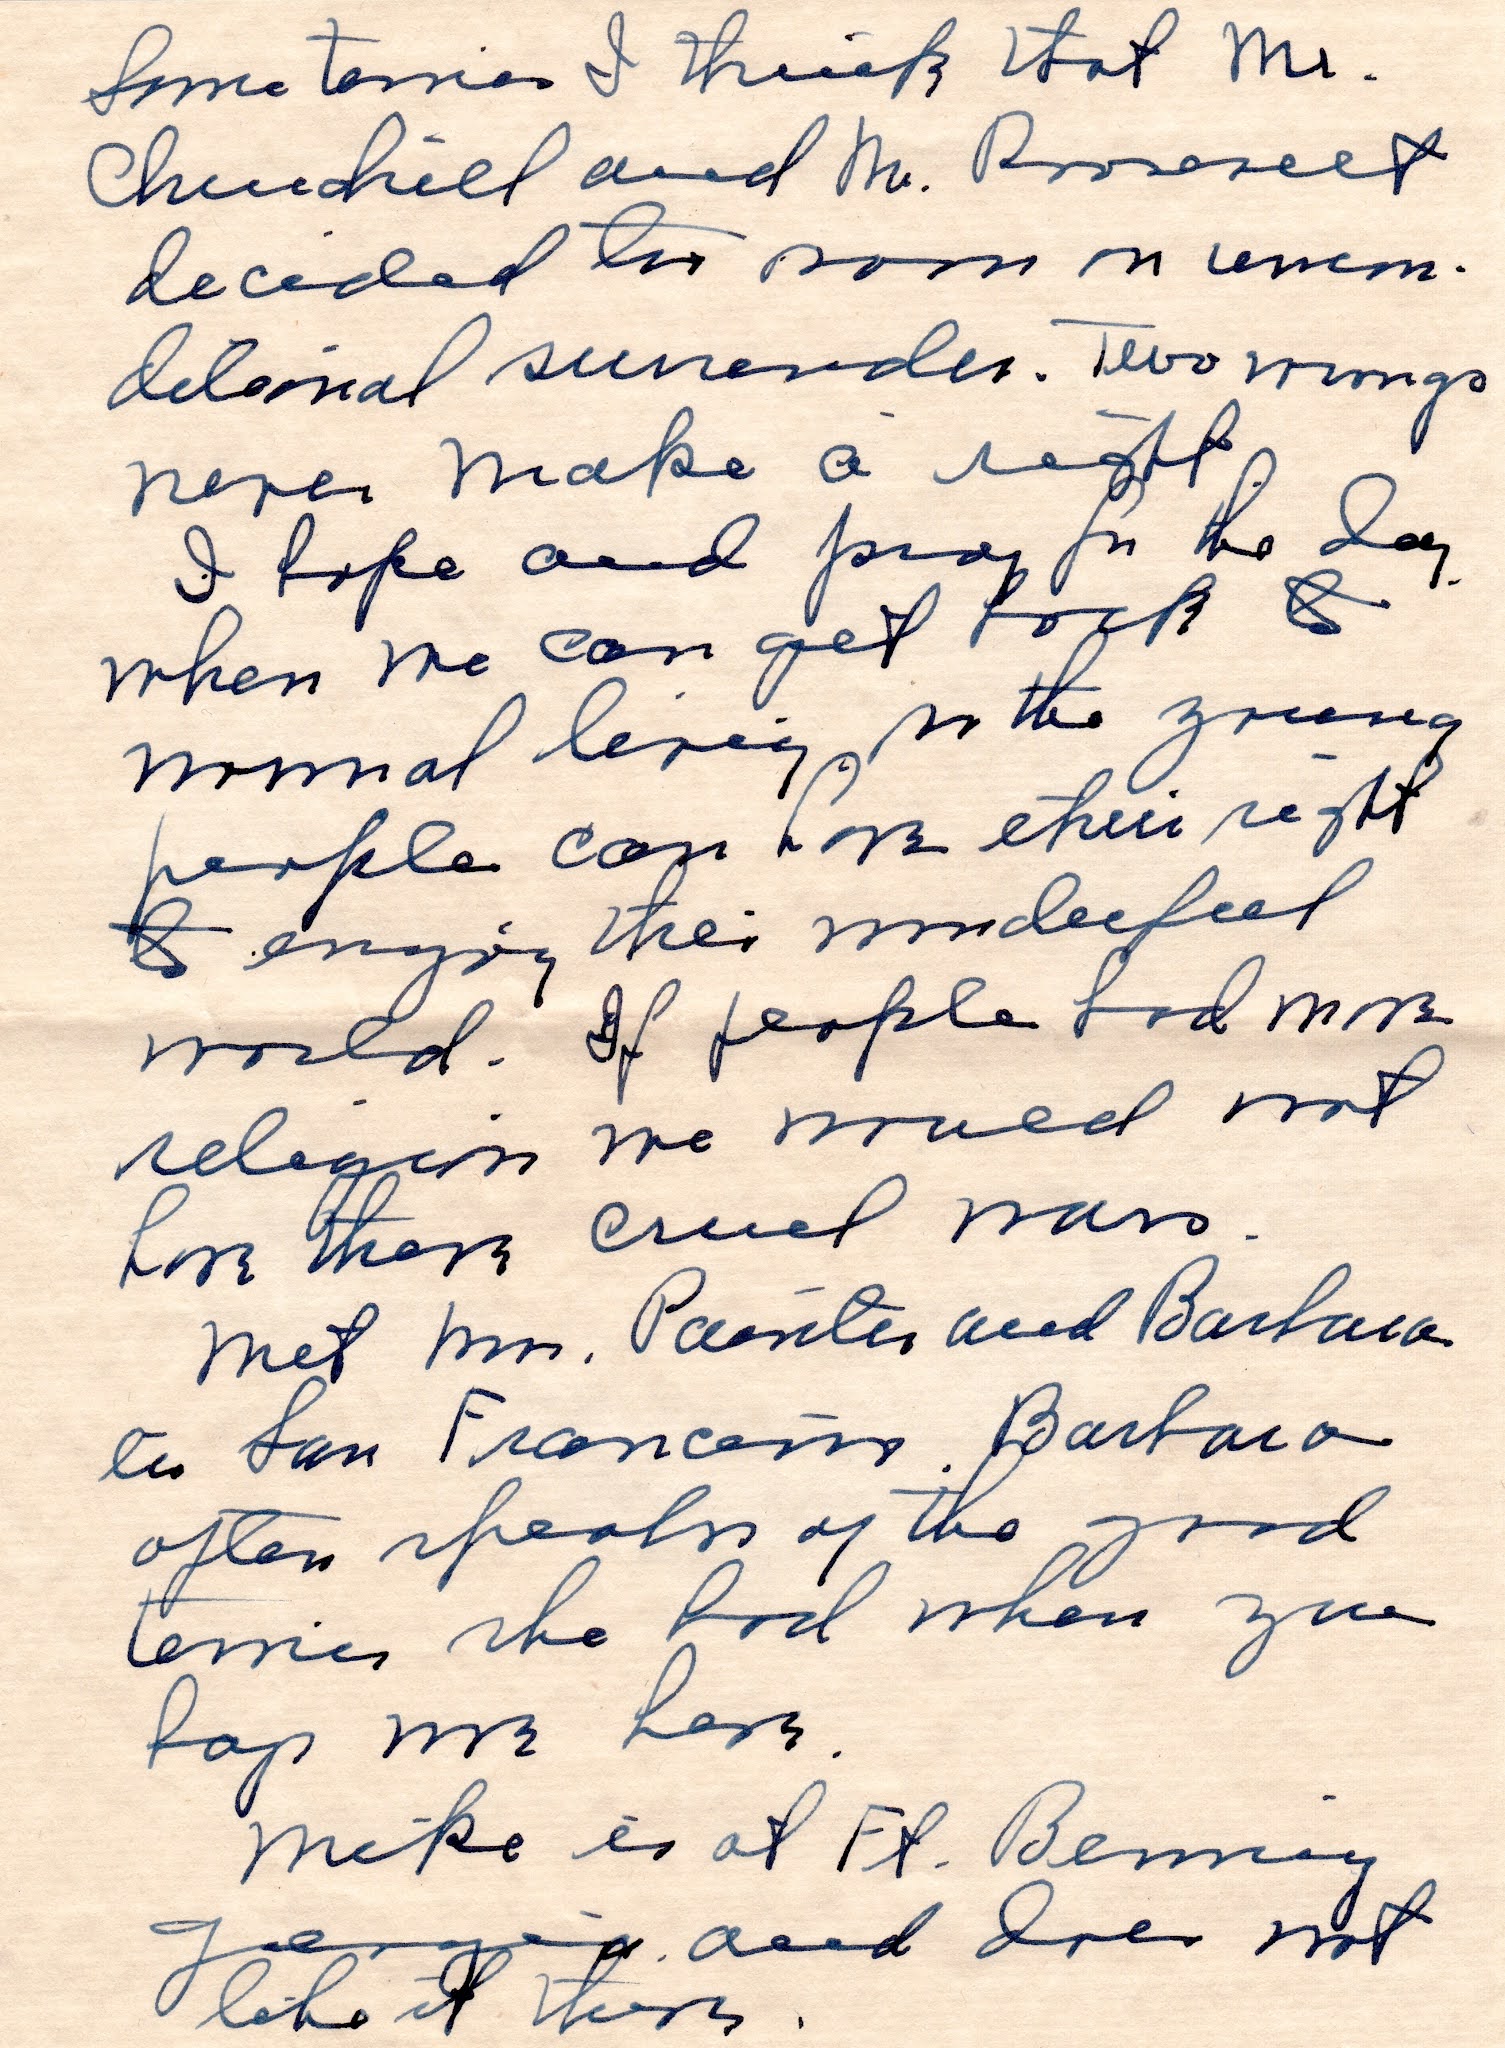 Sometimes I think that Mr.
Churchill and Mr. Roosevelt
decided too soon on uncon-
ditional surrender. Two wrongs
never make a right.
I hope and pray for the day
when we can get back to
normal living, so the young
people can have their right
to enjoy their wonderful
world. If people had more
religion we would not
have these cruel wars.
Met Mrs. Painter and Barbara
in San Francisco. Barbara
often speaks of the good
times she had when you
boys were here.
Mike is at Ft. Benning
Georgia. and does not
like it there.